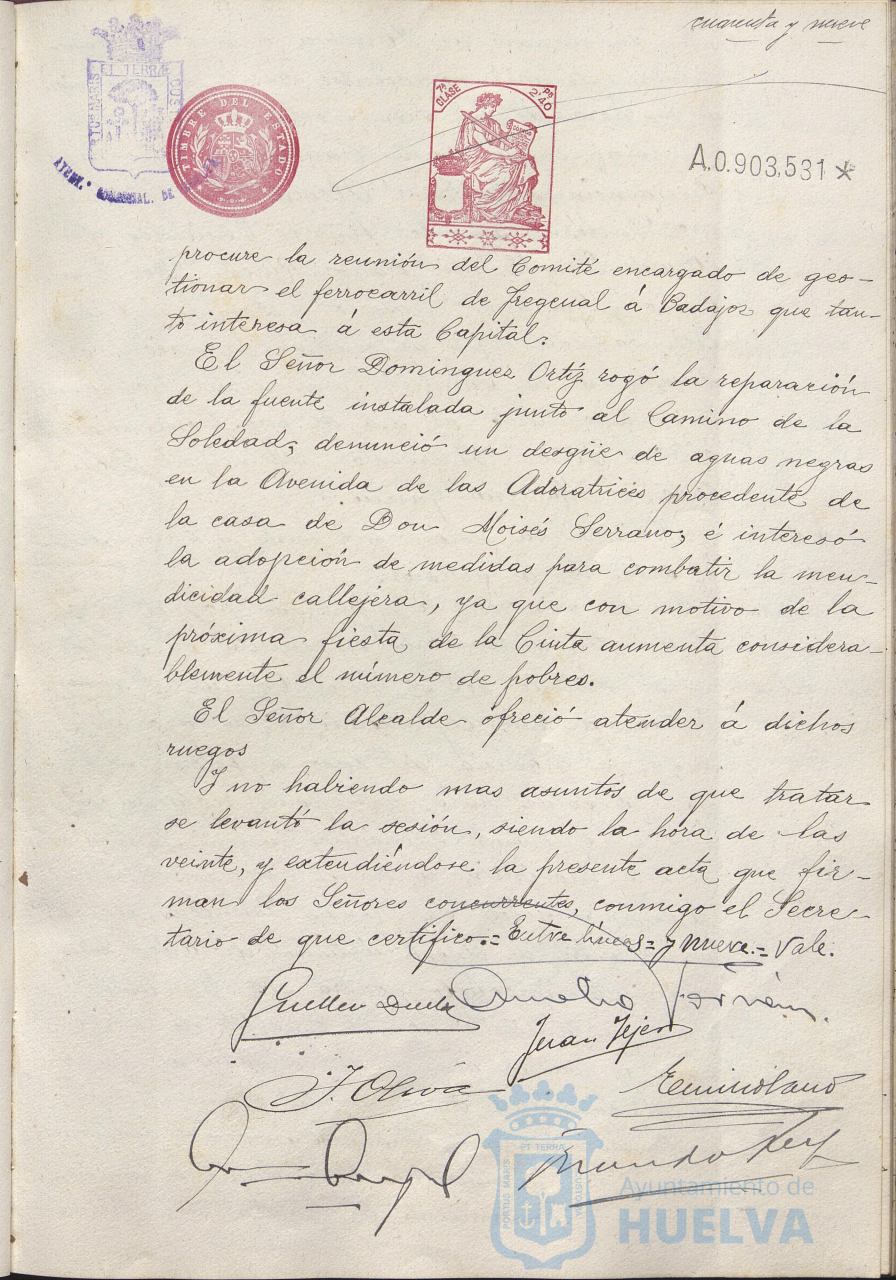 cuarenta y nueve
ET TERRÆ
TIMBRE DEL ESTADO
7ª CLASE
Ps 2'40
A.0.903,531 *
procure la reunión del Comité encargado de ges-
tionar el ferrocarril de Fregenal á Badajoz que tan-
to interesa á esta Capital.
El Señor Dominguez Ortíz rogó la reparación
de la fuente instalada junto al Camino de la
Soledad, denunció un desgüe de aguas negras
en la Avenida de las Adoratrices procedente de
la casa de Don Moisés Serrano, é interesó
la adopción de medidas para combatir la men-
dicidad callejera, ya que con motivo de la
próxima fiesta de la Cinta aumenta considera-
blemente el número de pobres.
El Señor Alcalde ofreció atender á dichos
ruegos
Y no habiendo mas asuntos de que tratar
se levantó la sesión, siendo la hora de las
veinte, y extendiéndose la presente acta que fir-
man los Señores concurrentes, conmigo el Secre-
tario de que certifico.= Entre líneas= y nueve.= Vale.
Juan Tejero
J. Oliva
PORTUS MARIS ET TERRÆ CUSTODIA
Ayuntamiento de
HUELVA